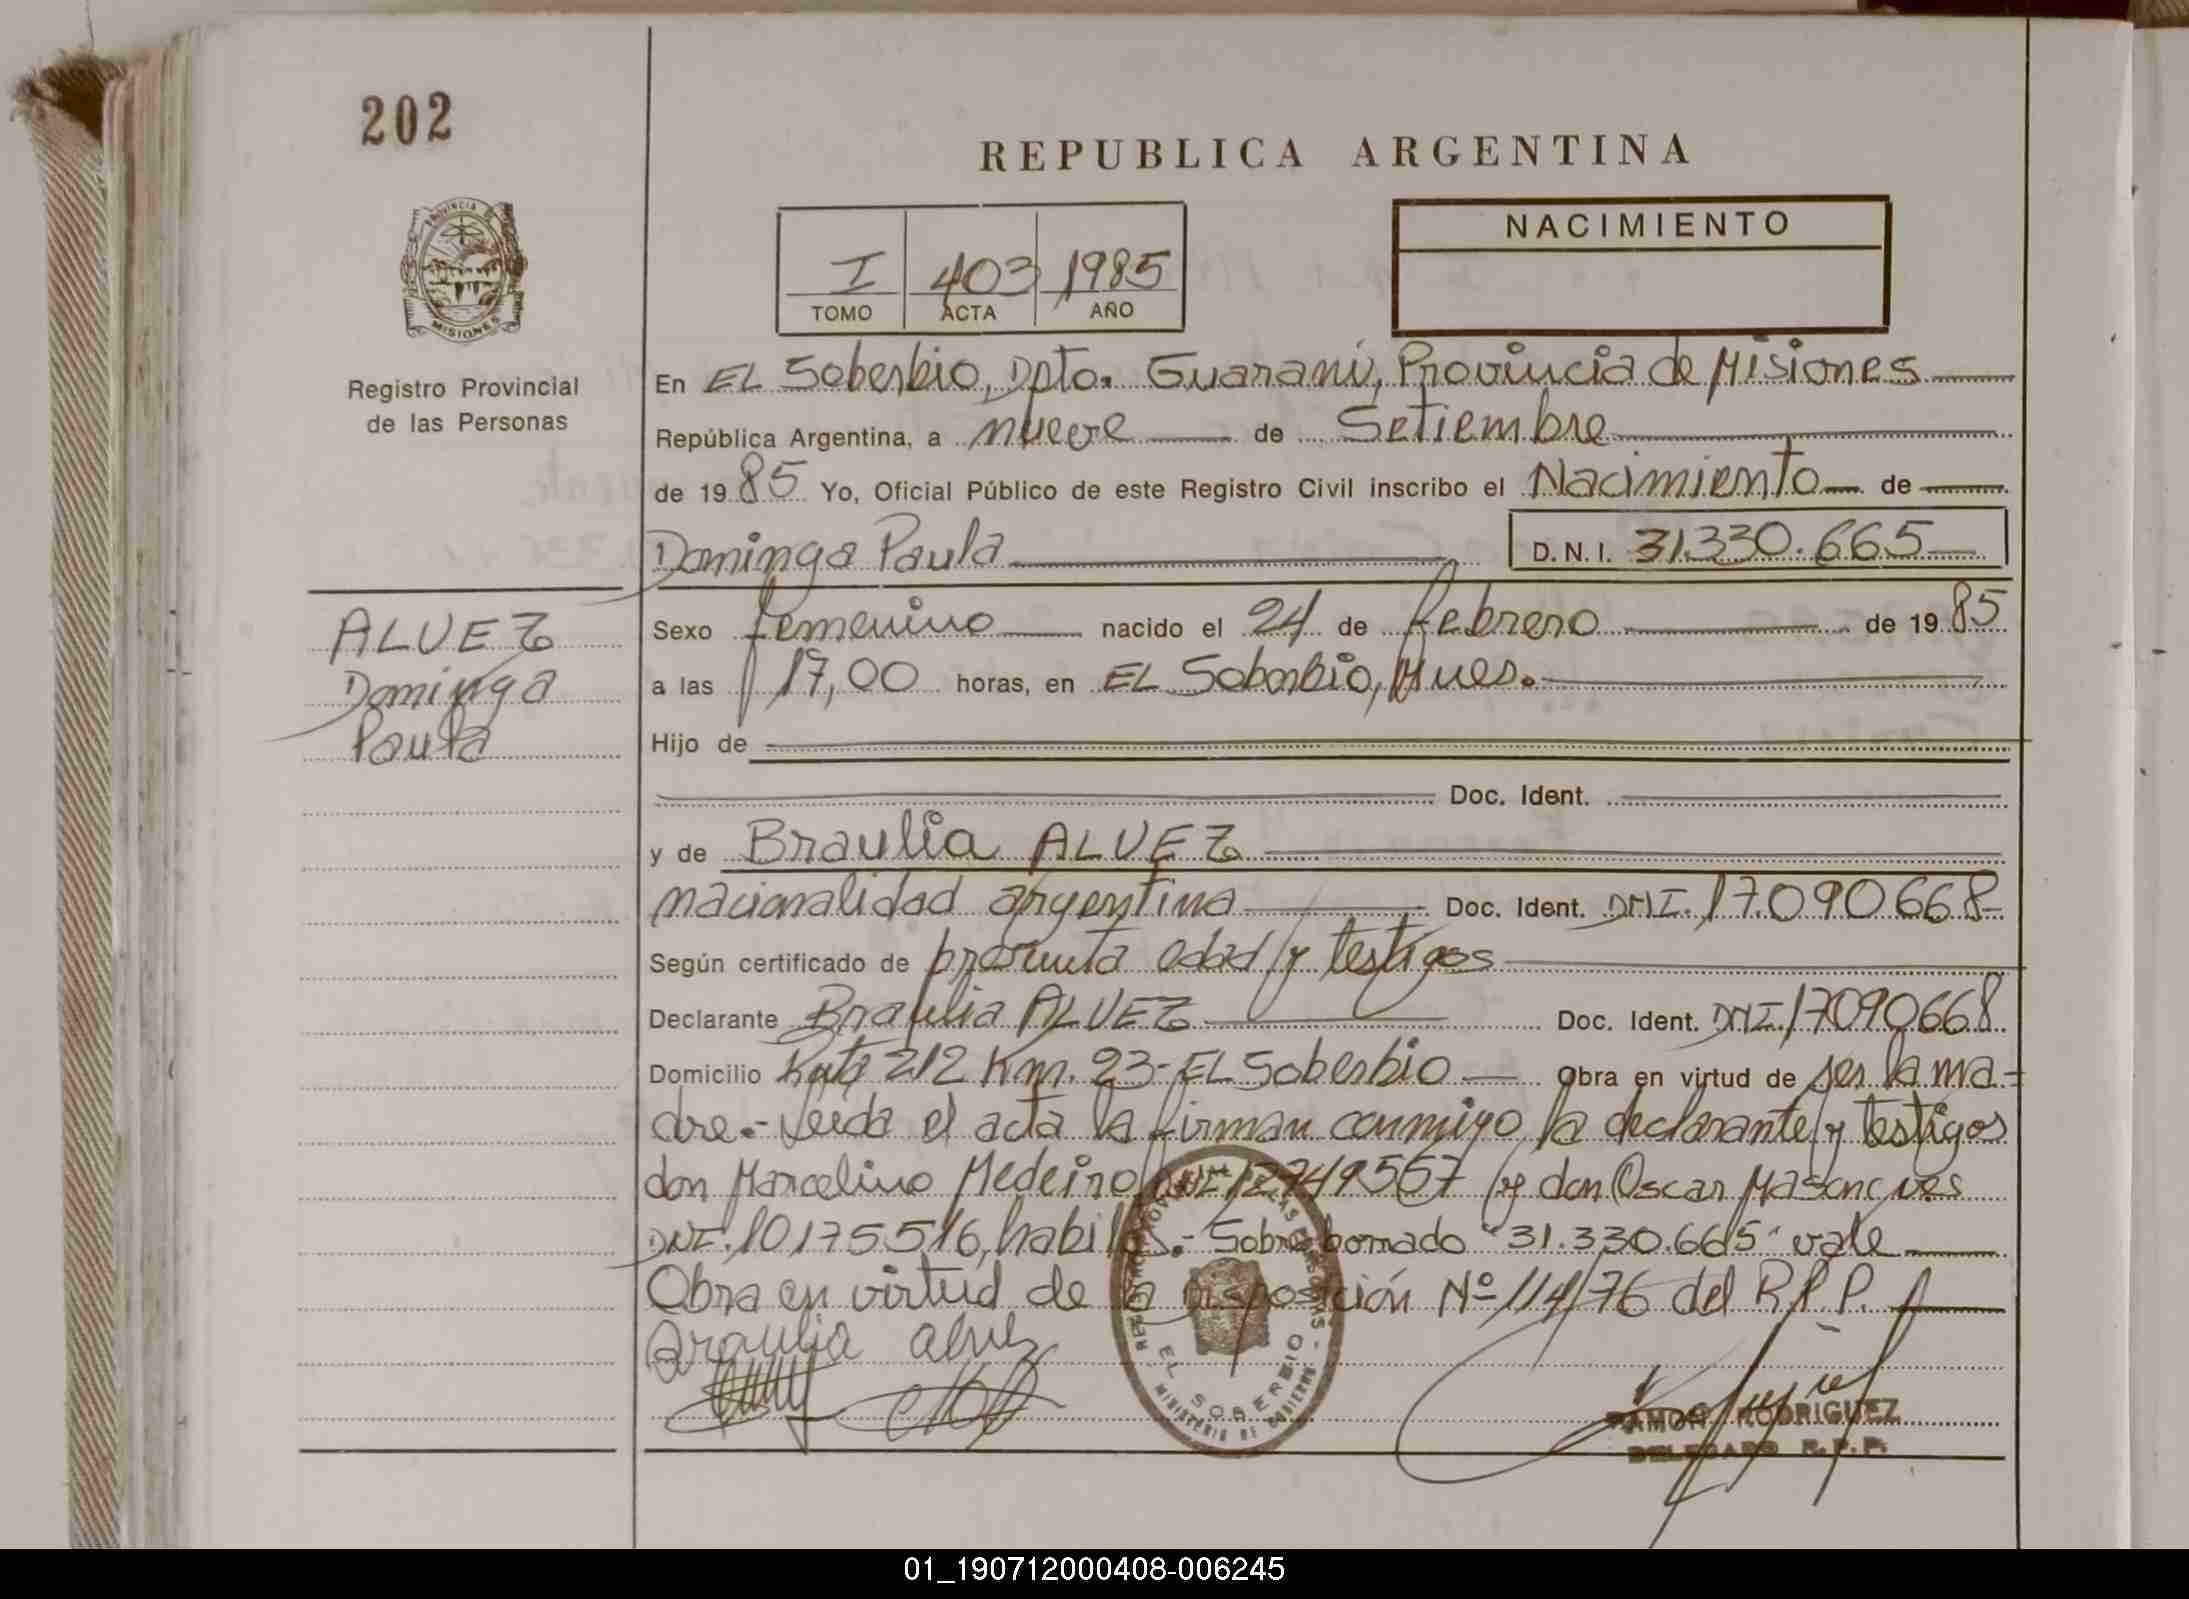 202
REPUBLICA ARGENTINA
PROVINCIA DE
MISIONES
Registro Provincial
de las Personas
I 403 1985
TOMO ACTA AÑO
NACIMIENTO
En EL Soberbio, Dpto. Guaraní, Provincia de Misiones
República Argentina, a nueve de Setiembre
de 1985 Yo, Oficial Público de este Registro Civil inscribo el Nacimiento de
Dominga Paula D.N.I. 31.330.665
ALVEZ
Dominga
Paula
Sexo femenino nacido el 24 de febrero de 1985
a las 17,00 horas, en EL Soberbio, Mnes.
Hijo de
Doc. Ident.
y de Braulia ALVEZ
nacionalidad argentina Doc. Ident. DNI. 17.090668
Según certificado de presunta edad y testigos
Declarante Braulia ALVEZ Doc. Ident. DNI. 17090668
Domicilio Ruta 212 Km. 23-EL Soberbio Obra en virtud de ser la ma-
dre.- Leida el acta la firman conmigo la declarante y testigos
don Marcelino Medeiro DNI 12749567 y don Oscar
DNI. 10175516, habiles.- Sobreborrado "31.330.665" vale
Obra en virtud de la disposición Nº 114/76 del R.P.P.
Braulia alvez
EL SOBERBIO
MINISTERIO DE GOBIERNO
RAMON RODRIGUEZ
DELEGADO R.P.P.
01_190712000408-006245